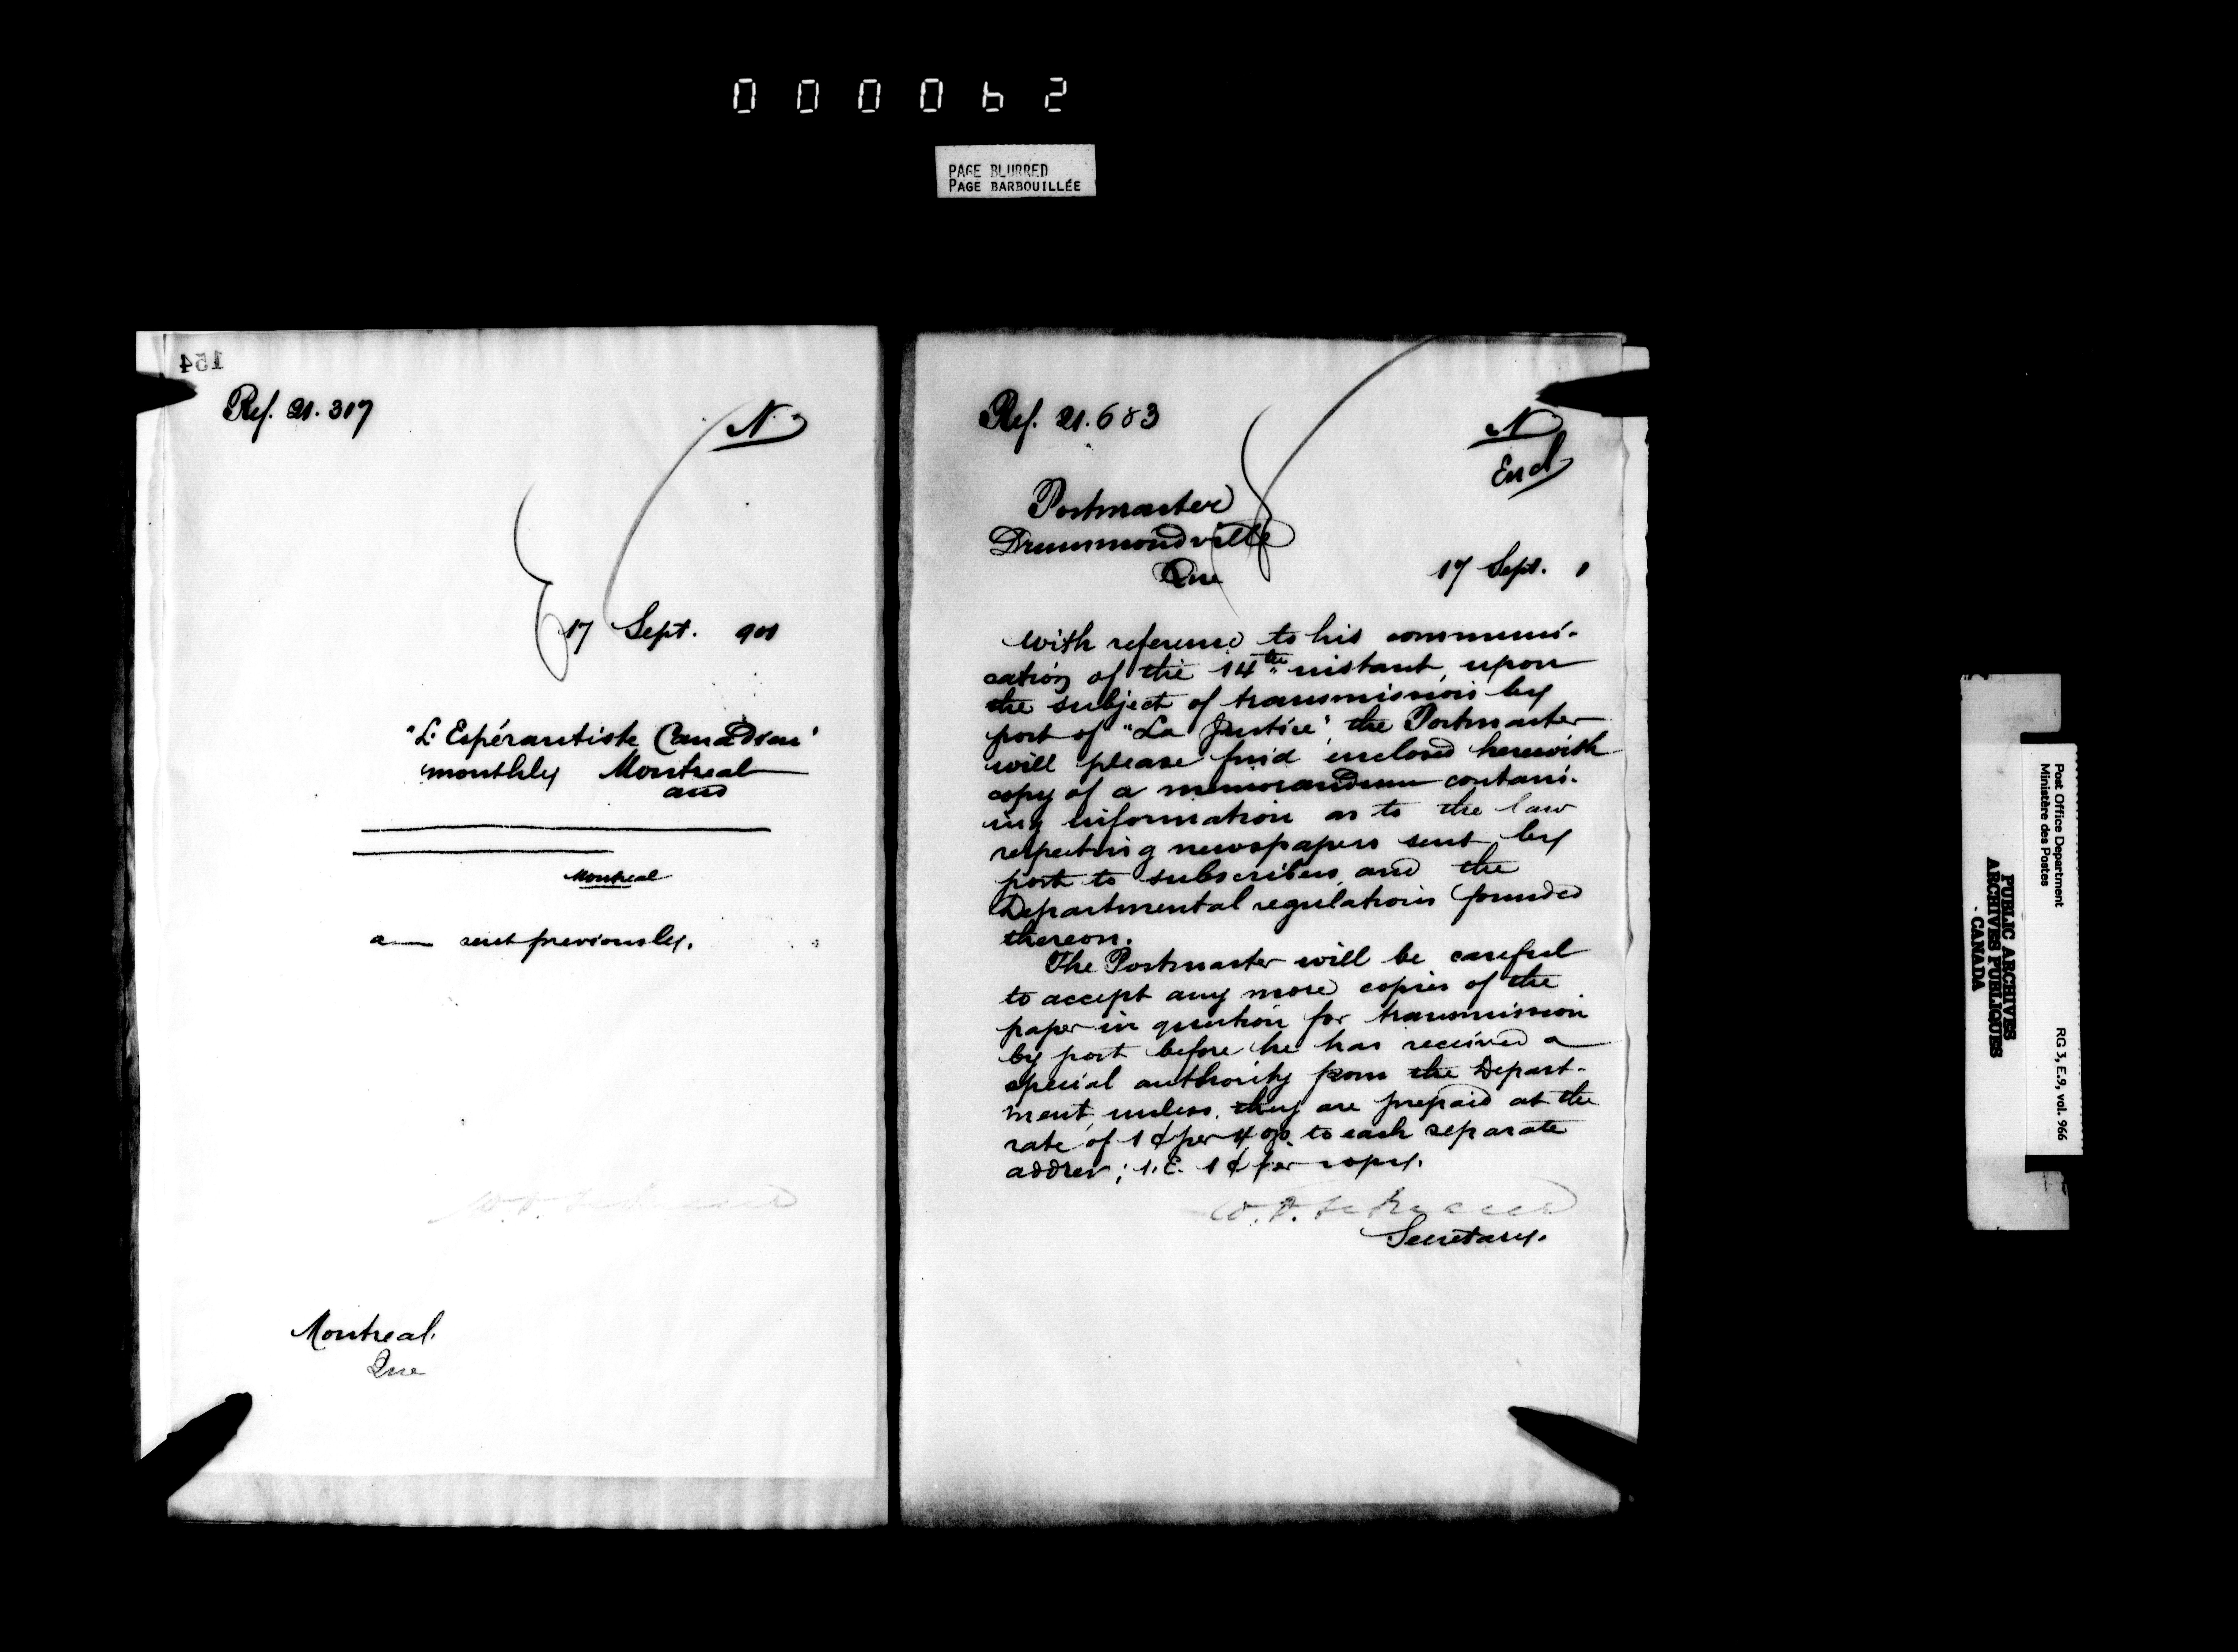 000062
PAGE BLURRED
PAGE BARBOUILLÉE
154
Ref. 21.317
N
17 Sept. 901
"L'Espérantiste Canadien"
monthly Montreal
and
Montreal
a sent previously.
Montreal.
Que
Ref. 21.683
N
Encl
Postmaster
Drummondville
Que
17 Sept. 1
With reference to his communi-
cation of the 14th instant, upon
the subject of transmission by
post of "La Justice", the Postmaster
will please find inclosed herewith
copy of a memorandum contain-
ing information as to the law
respecting newspapers sent by
post to subscribers, and the
Departmental regulations founded
thereon.
The Postmaster will be careful
to accept any more copies of the
paper in question for transmission
by post before he has received a
special authority from the Depart-
ment, unless they are prepaid at the
rate of 1¢ per 4 oz. to each separate
address; i.e. 1¢ per copy.
Secretary.
Post Office Department
Ministère des Postes
RG 3, E.9, vol. 966
PUBLIC ARCHIVES
ARCHIVES PUBLIQUES
CANADA